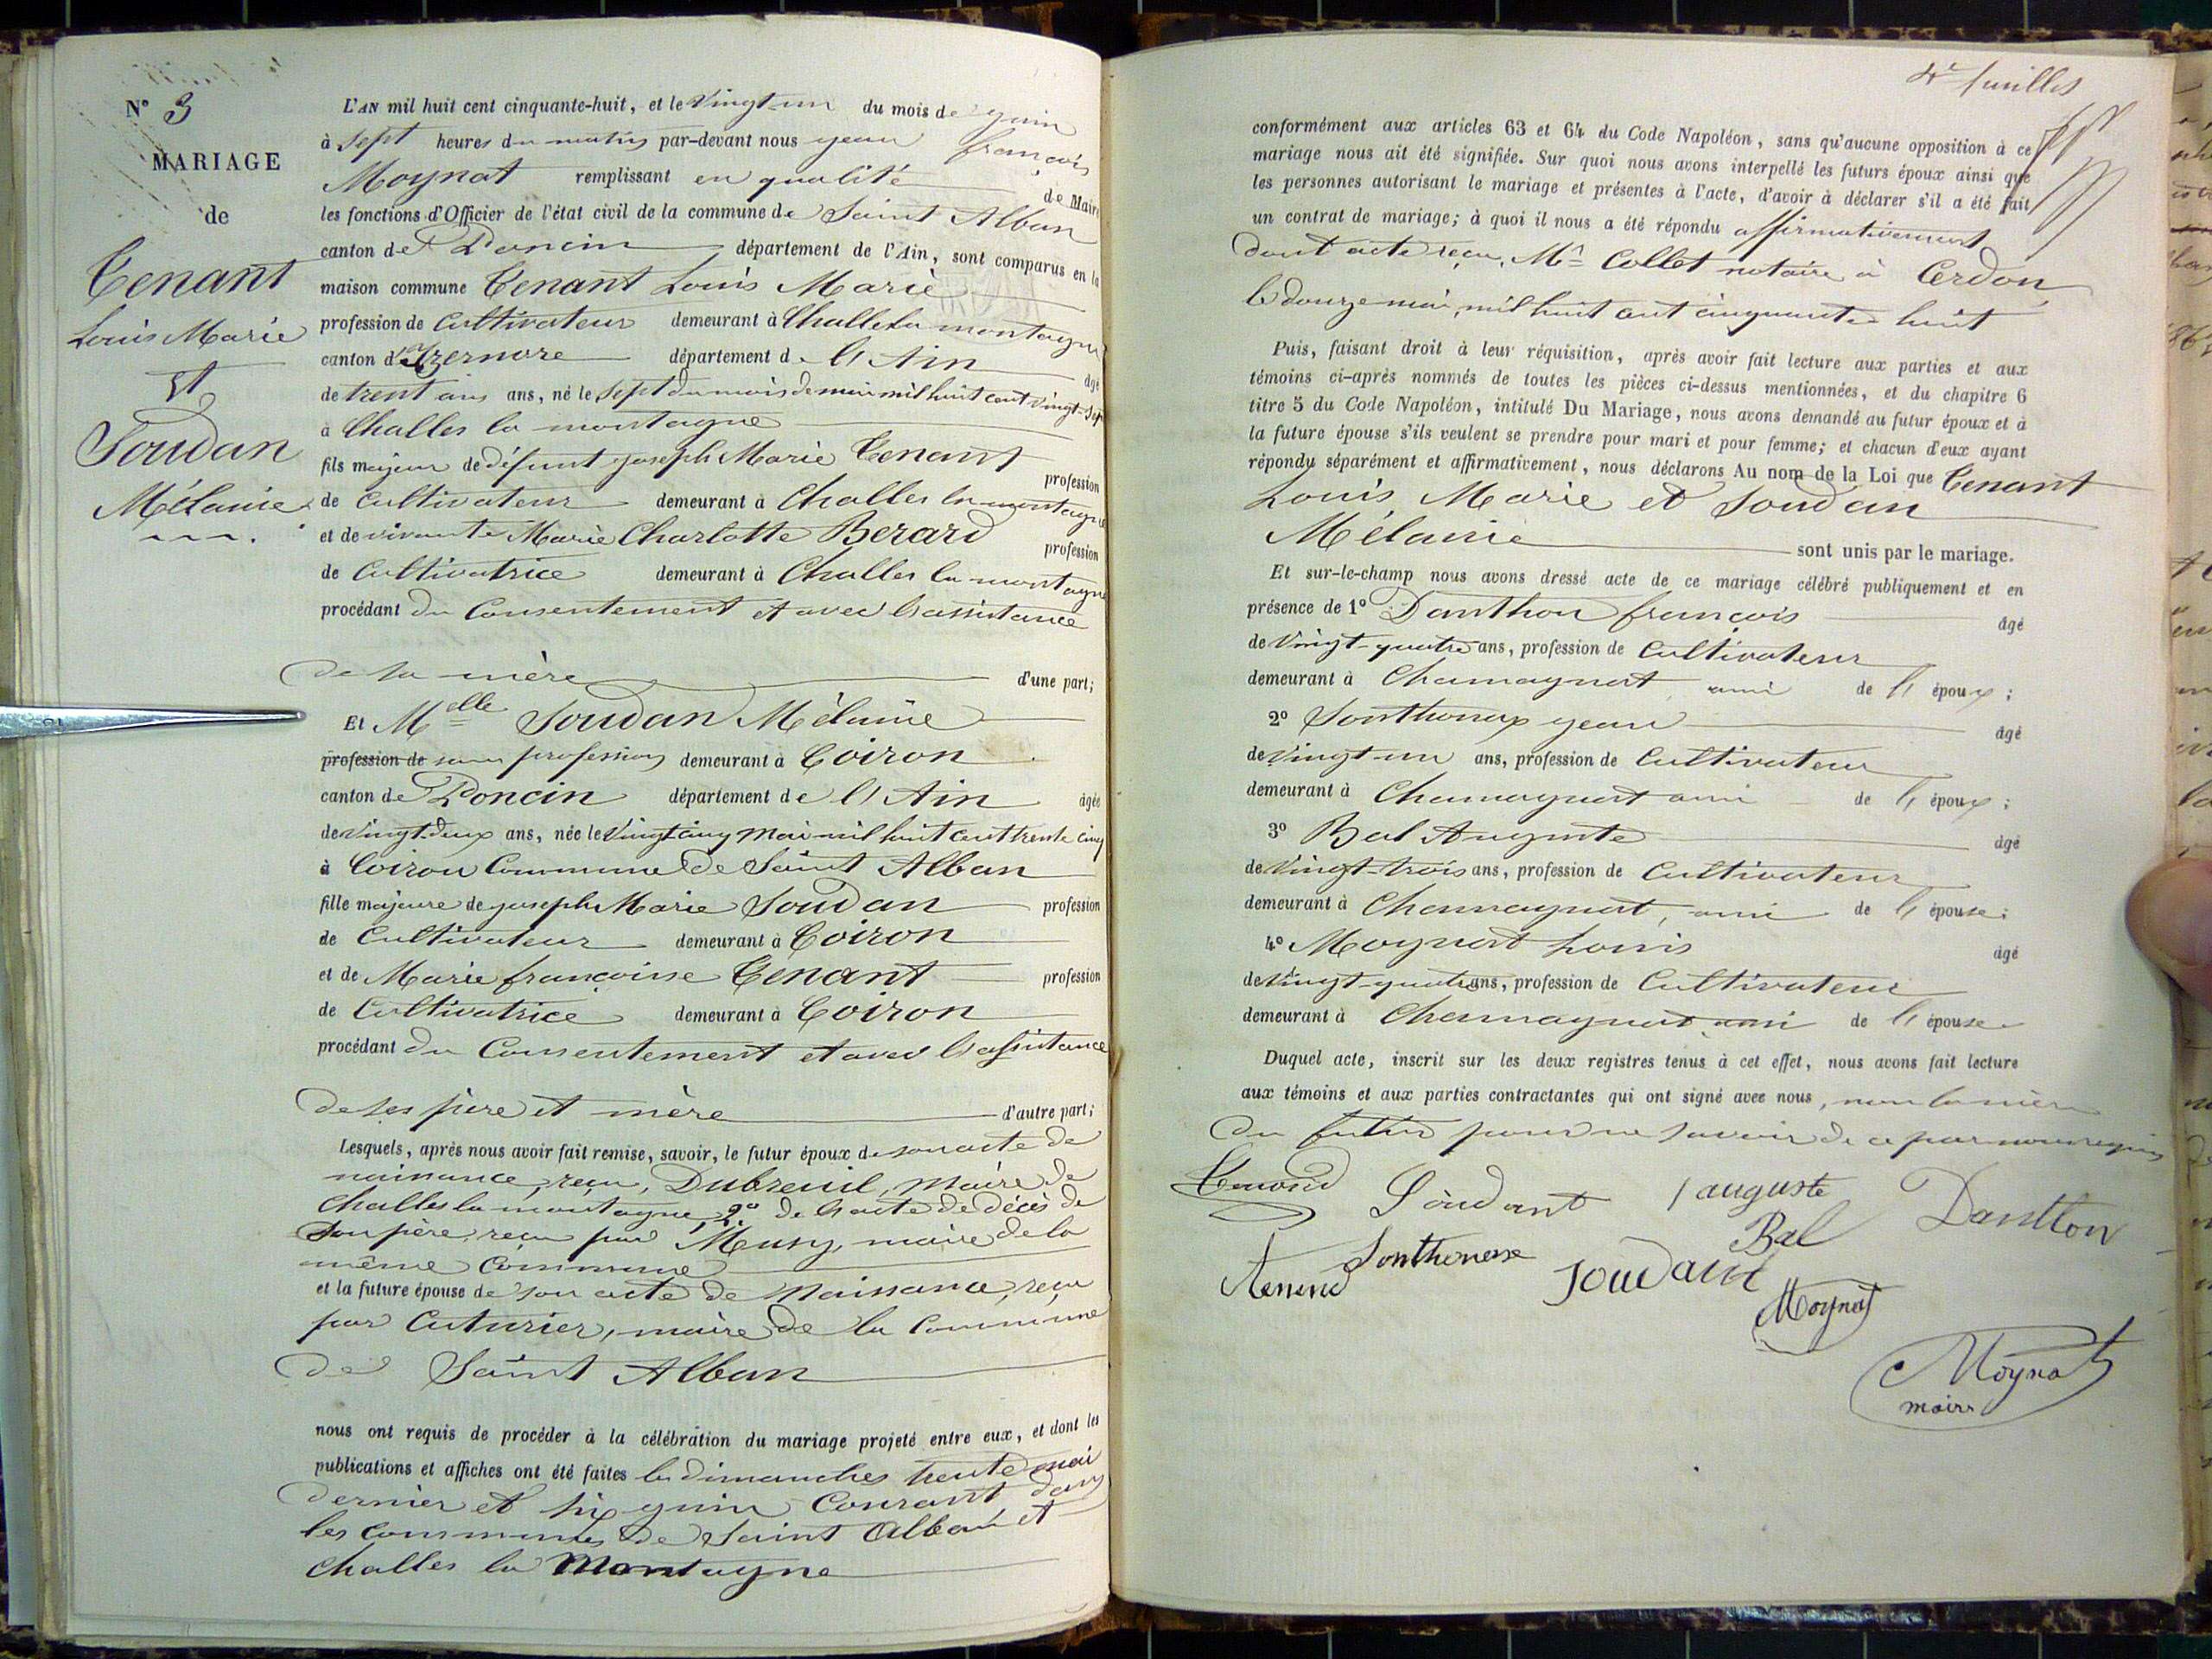 N° 3
MARIAGE
de
Tenant
Louis Marie
et
Soudan
Mélanie
L'AN mil huit cent cinquante-huit, et le vingt-un du mois de juin
à sept heures du matin par-devant nous jean françois
Moynat remplissant en qualité de Maire
les fonctions d'Officier de l'état civil de la commune de Saint Alban
canton de Poncin département de l'Ain, sont comparus en la
maison commune Tenant Louis Marie
profession de Cultivateur demeurant à Challes la montagne
canton d'Izernore département de l'Ain âgé
de trent ans ans, né le sept du mois de mai mil huit cent vingt-sept
à Challes la montagne
fils majeur de défunt joseph Marie Tenant profession
de Cultivateur demeurant à Challes la montagne
et de vivante Marie Charlotte Berard profession
de Cultivatrice demeurant à Challes la montagne
procédant du Consentement et avec l'assistance
de sa mère d'une part;
Et Melle Soudan Mélanie
profession de sans profession demeurant à Coiron
canton de Poncin département de l'Ain âgée
de vingt-deux ans, née le vingt cinq Mai mil huit cent trente cinq
à Coiron Commune de Saint Alban
fille majeure de joseph Marie Soudan profession
de Cultivateur demeurant à Coiron
et de Marie françoise Tenant profession
de Cultivatrice demeurant à Coiron
procédant du Consentement et avec l'assistance
de ses père et mère d'autre part;
Lesquels, après nous avoir fait remise, savoir, le futur époux de son acte de
naissance, reçu, Dubreuil, Maire de
Challes la montagne, 2° de l'acte de décès de
son père, reçu par Musy, maire de la
même Commune
et la future épouse de son acte de Naissance, reçu
par Cuturier, maire de la Commune
de Saint Alban
nous ont requis de procéder à la célébration du mariage projeté entre eux, et dont les
publications et affiches ont été faites les dimanches trente mai
dernier et six juin Courant dans
les communes de Saint Alban et
Challes la Montagne
4e feuillet
conformément aux articles 63 et 64 du Code Napoléon, sans qu'aucune opposition à ce
mariage nous ait été signifiée. Sur quoi nous avons interpellé les futurs époux ainsi que
les personnes autorisant le mariage et présentes à l'acte, d'avoir à déclarer s'il a été fait
un contrat de mariage; à quoi il nous a été répondu affirmativement
dont acte reçu, Me Collet notaire à Cerdon
le douze mai, mil huit cent cinquante huit
Puis, faisant droit à leur réquisition, après avoir fait lecture aux parties et aux
témoins ci-après nommés de toutes les pièces ci-dessus mentionnées, et du chapitre 6
titre 5 du Code Napoléon, intitulé Du Mariage, nous avons demandé au futur époux et à
la future épouse s'ils veulent se prendre pour mari et pour femme; et chacun d'eux ayant
répondu séparément et affirmativement, nous déclarons Au nom de la Loi que Tenant
Louis Marie et Soudan
Mélanie sont unis par le mariage.
Et sur-le-champ nous avons dressé acte de ce mariage célébré publiquement et en
présence de 1° Danthon françois âgé
de vingt-quatre ans, profession de Cultivateur
demeurant à Chamagnat ami de l'époux;
2° Sonthonax jean âgé
de vingt-un ans, profession de Cultivateur
demeurant à Chamagnat ami de l'époux;
3° Bal Auguste âgé
de vingt-trois ans, profession de Cultivateur
demeurant à Chamagnat, ami de l'épouse;
4° Moynat Louis âgé
de vingt-quatre ans, profession de Cultivateur
demeurant à Chamagnat ami de l'épouse
Duquel acte, inscrit sur les deux registres tenus à cet effet, nous avons fait lecture
aux témoins et aux parties contractantes qui ont signé avec nous, non la mère
du futur pour ne savoir de ce par nous requis
Soudant auguste Danthon
Bal
Sonthonax Soudant
Moynat
Moynat
maire